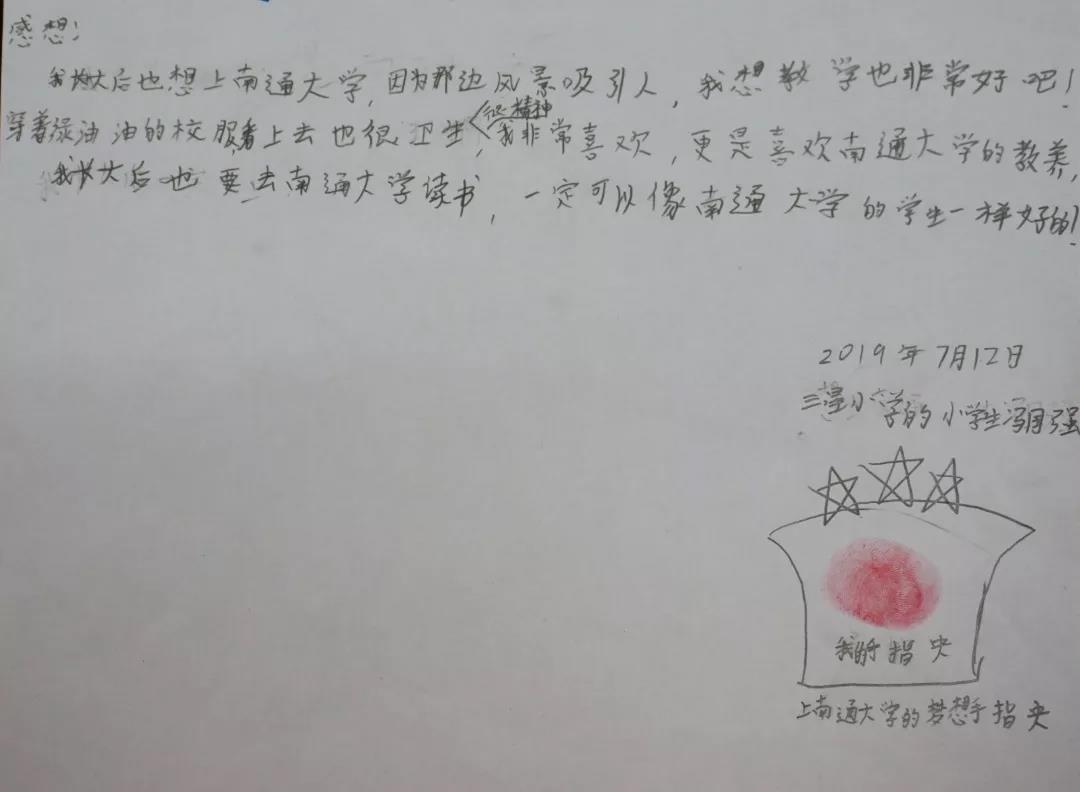 感想!
我长大后也想上南通大学,因为那边风景吸引人,我想教学也非常好吧!
穿着绿油油的校服,看上去也很卫生,很精神我非常喜欢,更是喜欢南通大学的教养,
我长大后也要去南通大学读书,一定可以像南通大学的学生一样好的!
2019年7月12日
三星小学的小学生冯强
我的指央
上南通大学的梦想手指央